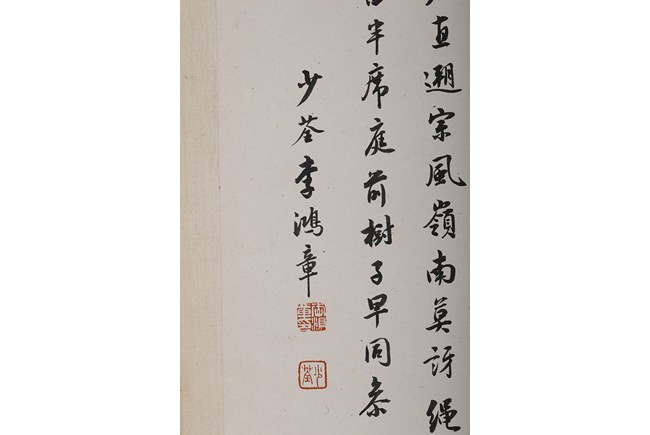 直遡宗風嶺南莫訝繩
半席庭前樹子早同參
少荃李鴻章
少荃